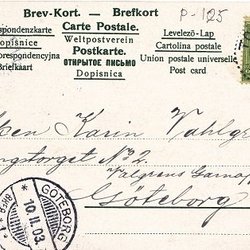 Brev-Kort. — Brefkort P-125
spondenzkarte Carte Postale. Levelező-Lap
Dopisnice Weltpostverein Cartolina postale
orrespondencyjna Postkarte. Union postale universelle
Briefkaart ОТКРЫТОЕ ПИСЬМО Post card
Dopisnica
Karin Wahlgr
ngstorget No 2.
Göteborg
GÖTEBORG
10.11.03.